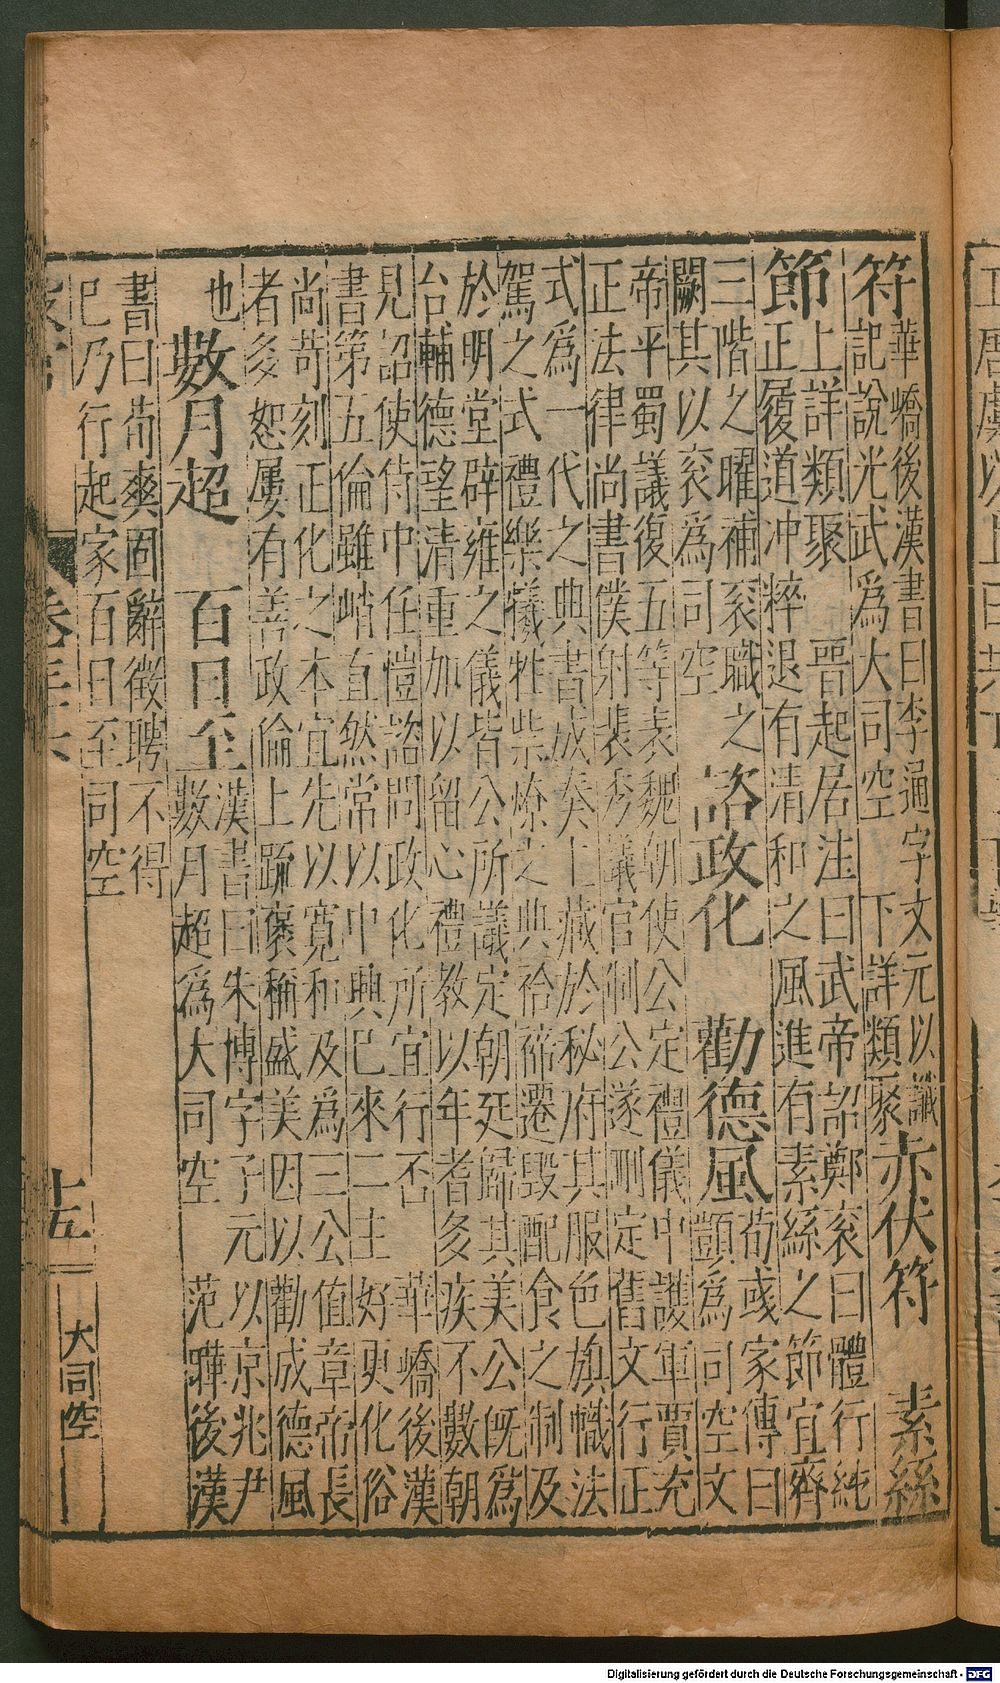 符
華嶠後漢書曰李通字文元以讖
記說光武爲大司空　下詳類聚
赤伏符　素絲
節
上詳類聚　晉起居注曰武帝詔鄭袤曰體行純
正履道冲粹退有清和之風進有素絲之節宜齊
三階之曜補袞職之
闕其以袤爲司空
諮政化　勸德風
荀彧家傳曰
顗爲司空文
帝平蜀議復五等表魏朝使公定禮儀中護軍賈充
正法律尚書僕射裴秀議官制公遂刪定舊文行正
式爲一代之典書成奏上藏於秘府其服色旗幟法
駕之式禮樂犧牲柴燎之典祫禘遷毀配食之制及
於明堂辟雍之儀皆公所議定朝廷歸其美公既爲
台輔德望清重加以留心禮教以年耆多疾不數朝
見詔使侍中任愷諮問政化所宜行否　華嶠後漢
書第五倫雖峭直然常以中興巳來二主好更化俗
尚苛刻正化之本宜先以寬和及爲三公值章帝長
者多恕屢有善政倫上疏褒稱盛美因以勸成德風
也
數月超　百日至
漢書曰朱博字子元以京兆尹
數月超爲大司空　范曄後漢
書曰荀爽固辭徵聘不得
巳乃行起家百日至司空
十五　大司空
Digitalisierung gefördert durch die Deutsche Forschungsgemeinschaft - DFG